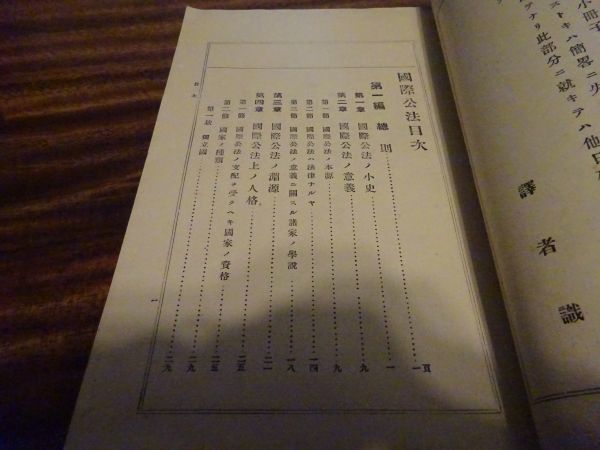 小冊子
ストキハ簡畧ニ失
テナリ此部分ニ就キテハ他日
譯者識
國際公法目次
第一編 總則 一頁
第一章 國際公法ノ小史 一
第二章 國際公法ノ意義 九
第一節 國際公法ノ本源 九
第二節 國際公法ハ法律ナルヤ 一四
第三節 國際公法ノ意義ニ關スル諸家ノ學說 一八
第三章 國際公法ノ淵源 二一
第四章 國際公法上ノ人格 二五
第一節 國際公法ノ支配ヲ受クヘキ國家ノ資格 二五
第二節 國家ノ種類 二九
第一款 獨立國 二九
目次
一